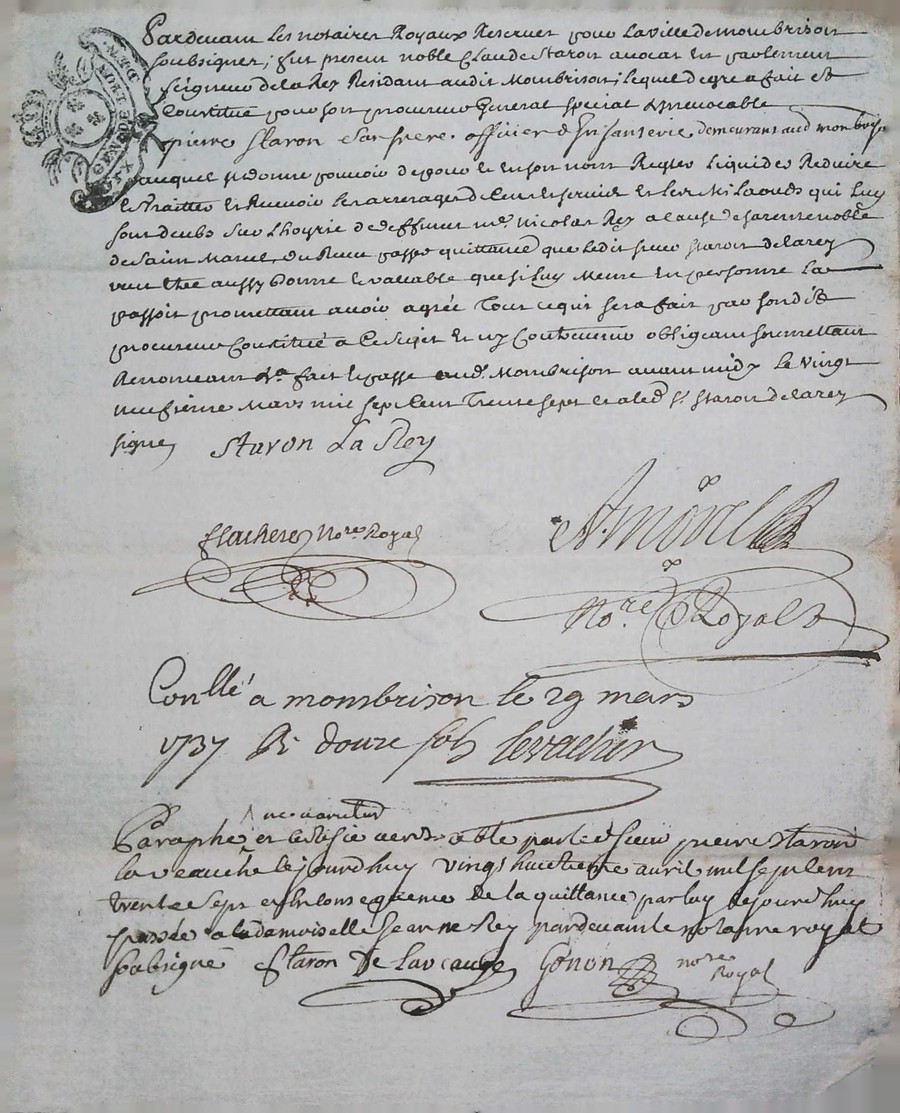 Pardevant les notaires Royaux Reservez pour la ville de mombrison
soubsignez, fut present noble Claude Staron avocat en parlement
seigneur de la Rey Residant audit Mombrison, lequel de gre a fait et
Constitué pour son procureur General special et irrevocable
pierre Staron son frere officier d'infanterie demeurant aud mombrison
auquel il donne pouvoir de pour et en son nom Regler Liquider Reduire
et traitter et Recevoir les arrerages de
sont deubs sur L'hoyrie de deffunct mre Nicolas Rey a cause de sa rente noble
de Saint Marcel, du Receu passer quittance que ledit sieur Staron de la rey
veut etre aussy bonne et vallable que si luy Meme en personne la
passoit promettant avoir agrée Tout ce qui sera fait par sondit
procureur Constitué a ce sujet et y Contrevenir obligeant soumettant
Renonceant &a fait et passé aud. Mombrison avant midy le vingt
neufieme Mars mil sept cent Trente sept et a led sr Staron de la rey
signé Staron La Rey
flachere Nore Royal
Morel
Nore Royal
Conllé a mombrison le 29 mars
1737 R. douze sols levacher
ne varietur
Paraphé et certifié veritable par led sieur pierre Staron
laveauche cejourdhuy vingt huitieme avril mil sept cent
trente sept en Consequence de la quittance par luy cejourdhuy
passée a la damoiselle jeanne Rey pardevant le notaire royal
soubsigné Staron De Laveauche Gonon nore
Royal